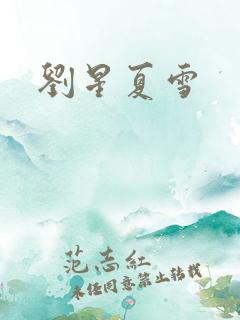 劉星夏雪
范志紅
未經同意禁止轉載